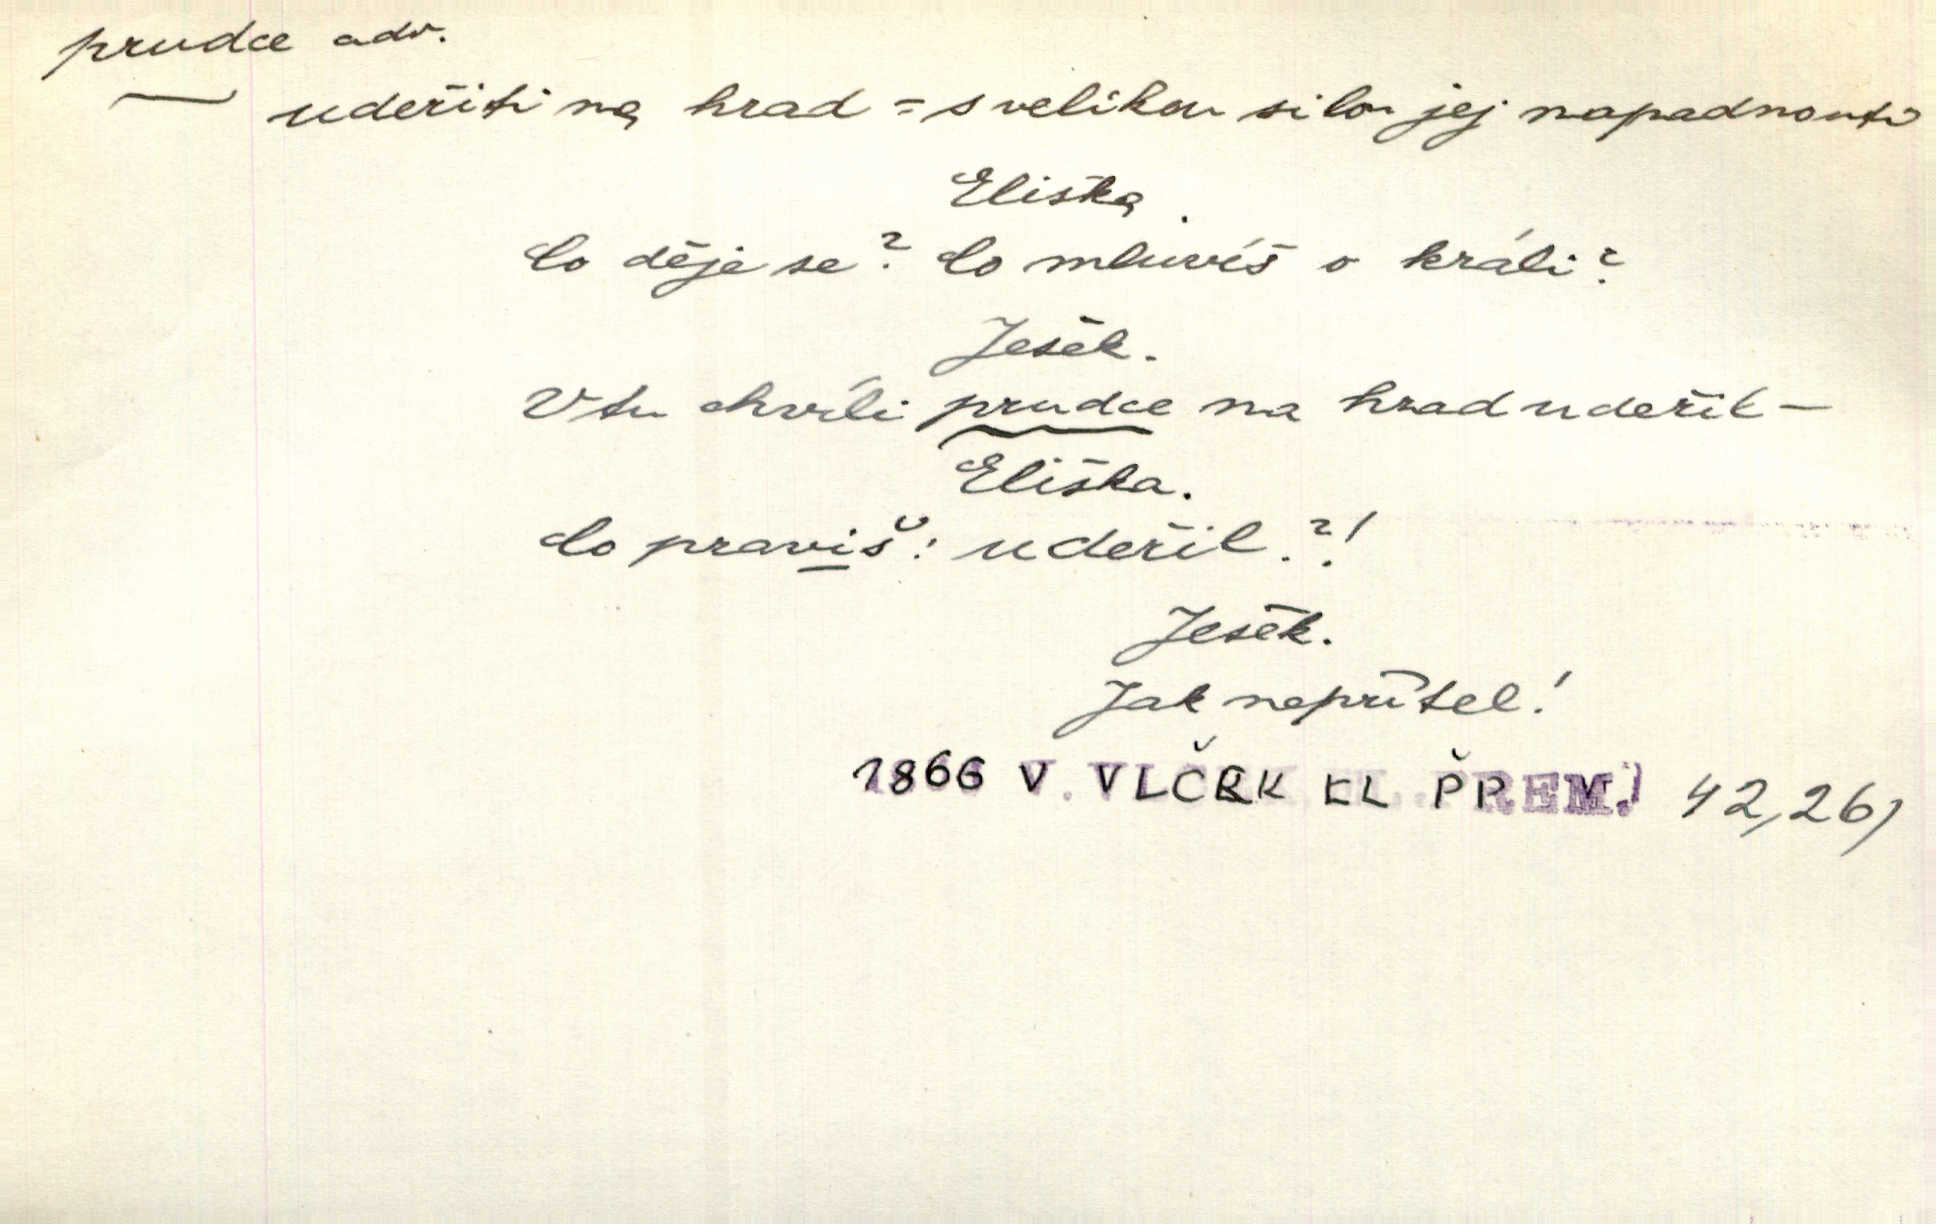 prudce adv.
udeřiti na hrad = s velikou silou jej napadnouti
Eliška.
Co děje se? Co mluvíš o králi?
Ješek.
V tu chvíli prudce na hrad udeřil —
Eliška.
Co praviš: udeřil?!
Ješek.
Jak nepřítel!
1866 V. VLČEK EL. PŘEM. 42,26)